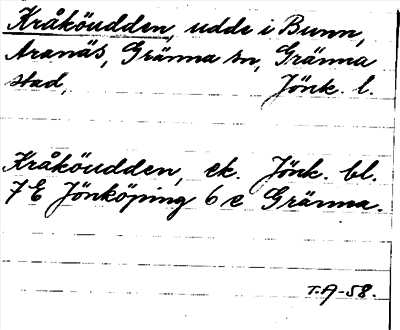 Kråköudden, udde i Bunn,
Aranäs, Gränna sn, Gränna
stad, Jönk. l.
Kråköudden, ek. Jönk. bl.
7E Jönköping 6 e Gränna.
T.A-58.